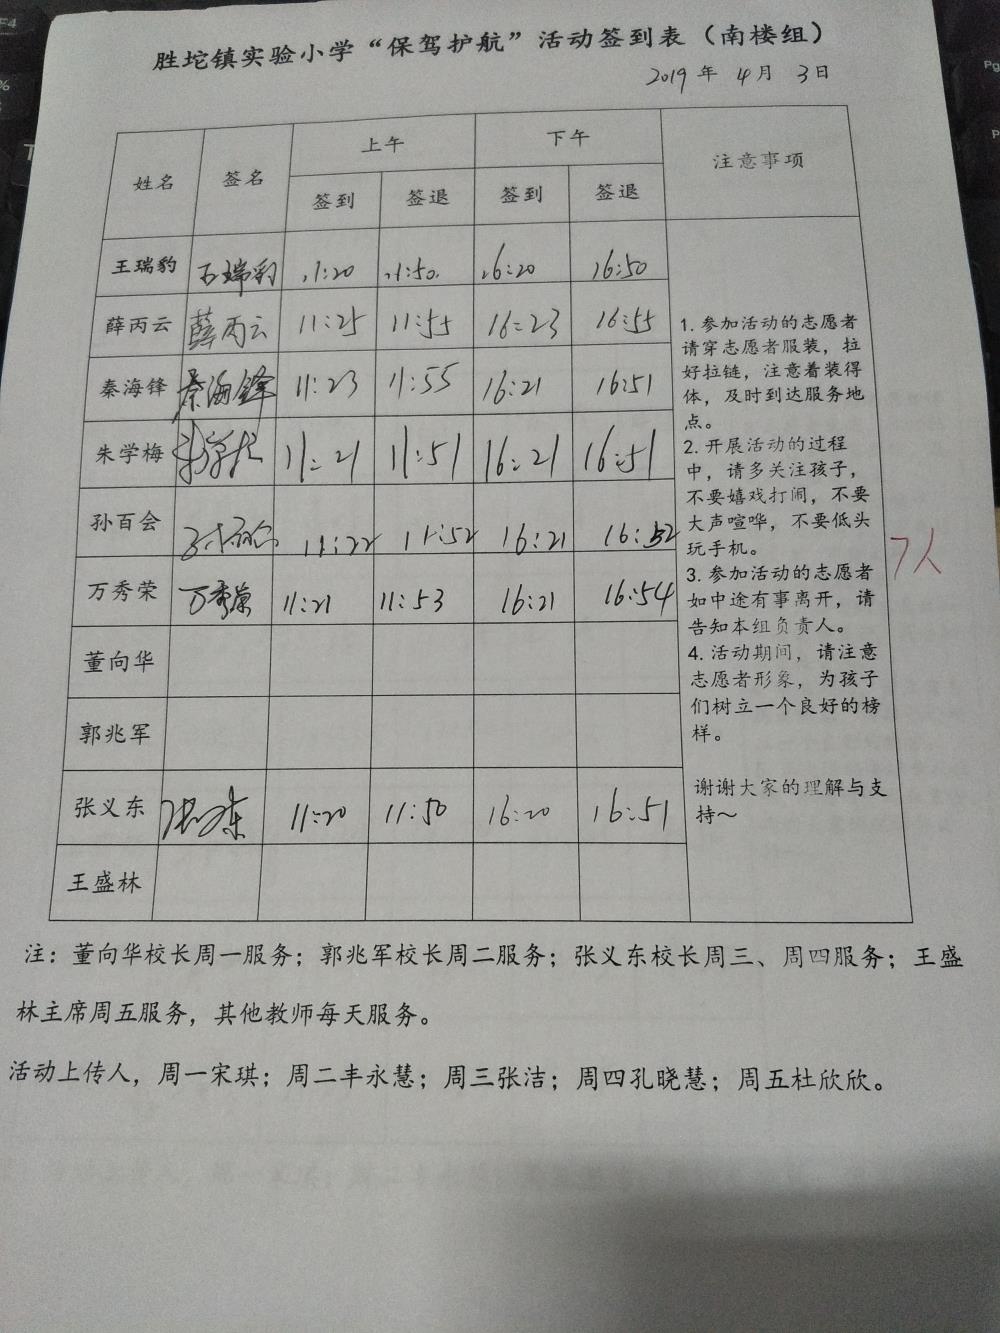 胜坨镇实验小学“保驾护航”活动签到表（南楼组）
2019 年 4 月 3 日
姓名 签名 上午 下午 注意事项
签到 签退 签到 签退
王瑞豹 王瑞豹 11:20 11:50 16:20 16:50
薛丙云 薛丙云 11:25 11:55 16:23 16:55
秦海锋 秦海锋 11:23 11:55 16:21 16:51
朱学梅 朱学梅 11:21 11:51 16:21 16:51
孙百会 孙百会 11:22 11:52 16:21 16:52
万秀荣 万秀荣 11:21 11:53 16:21 16:54
董向华
郭兆军
张义东 张义东 11:20 11:50 16:20 16:51
王盛林
1. 参加活动的志愿者
请穿志愿者服装，拉
好拉链，注意着装得
体，及时到达服务地
点。
2. 开展活动的过程
中，请多关注孩子，
不要嬉戏打闹，不要
大声喧哗，不要低头
玩手机。
3. 参加活动的志愿者
如中途有事离开，请
告知本组负责人。
4. 活动期间，请注意
志愿者形象，为孩子
们树立一个良好的榜
样。
谢谢大家的理解与支
持～
7人
注：董向华校长周一服务；郭兆军校长周二服务；张义东校长周三、周四服务；王盛
林主席周五服务，其他教师每天服务。
活动上传人，周一宋琪；周二丰永慧；周三张洁；周四孔晓慧；周五杜欣欣。